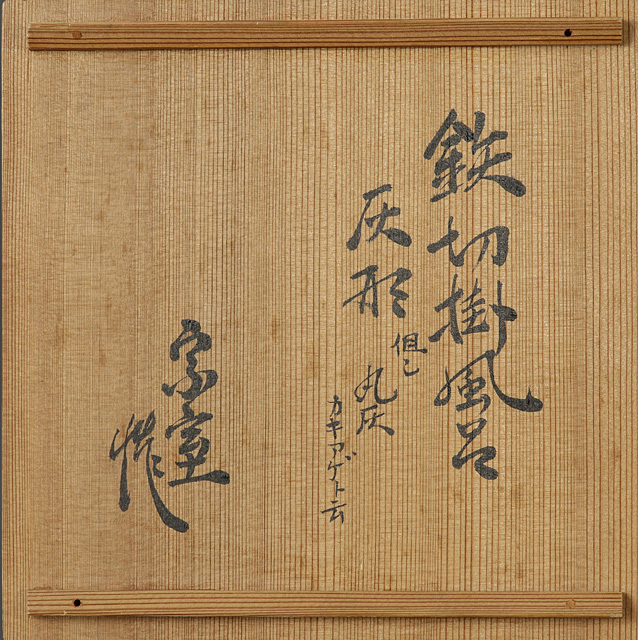 鉄切掛風呂
灰形
但し
丸灰
カキアゲト云
宗室
作